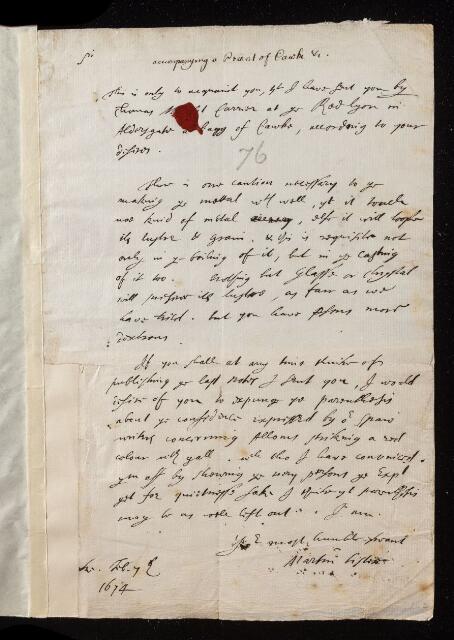 Sir
accompanying a Present of Cawke &c.
This is only to acquaint you, yt I have sent you by
Thomas Carrier at ye Red lyon in
Aldersgate a bagg of Cawke, according to your
desires.
76
There is one caution necessary to ye
making ye mettal wth well, yt it touch
noe kind of metal, else it will loose
its lustre & grain. & this is requisite not
only in ye boiling of it, but in ye casting
of it too. Nothing but Glasse or Chrystal
will preserve its lustre, as farr as we
have tried. but you have persons more
dextrous.
If you shall at any time thinke of
publishing ye last notes I sent you, I would
desire of you to expunge ye parenthesis
about ye confidence expressed by
writers concerning Allom striking a red
colour wth gall. wch tho I have convinced
ym off by showing ye very persons ye Expt
yet for quietnesse sake I yt parenthesis
may be as well left out. I am
Yr most humble servant
Martin Lister
Feb. 7
1674